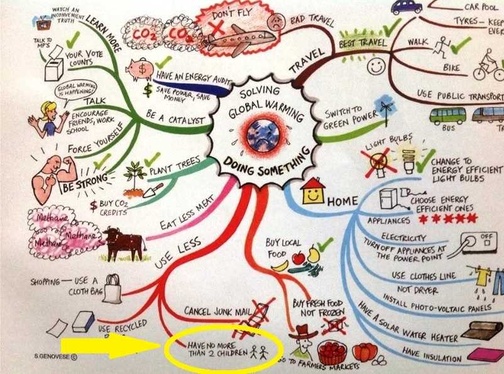 WATCH AN
INCONVENIENT
TRUTH
LEARN MORE
TALK TO
MP'S
YOUR VOTE
COUNTS
GLOBAL WARMING
IS HAPPENING!
TALK
ENCOURAGE
FRIENDS, WORK
SCHOOL
FORCE YOURSELF
BE STRONG
HAVE AN ENERGY AUDIT
$ SAVE POWER, SAVE
MONEY
BE A CATALYST
CO2
CO2
DON'T FLY
BAD TRAVEL
TRAVEL
BEST TRAVEL
CAR POOL
TYRES - KEEP
WALK
BIKE
USE PUBLIC TRANSPORT
BUS
SOLVING
GLOBAL WARMING
DOING SOMETHING
SWITCH TO
GREEN POWER
LIGHT BULBS
CHANGE TO
ENERGY EFFICIENT
LIGHT BULBS
HOME
CHOOSE ENERGY
EFFICIENT ONES
APPLIANCES
ELECTRICITY
TURN OFF APPLIANCES AT
THE POWER POINT
OFF
USE CLOTHES LINE
NOT DRYER
INSTALL PHOTO-VOLTAIC PANELS
HAVE A SOLAR WATER HEATER
HAVE INSULATION
PLANT TREES
$ BUY CO2
CREDITS
Methane
Methane
Methane
EAT LESS MEAT
USE LESS
SHOPPING - USE A
CLOTH BAG
USE RECYCLED
CANCEL JUNK MAIL
HAVE NO MORE
THAN 2 CHILDREN
BUY LOCAL
FOOD
BUY FRESH FOOD
NOT FROZEN
GO TO FARMERS MARKETS
S.GENOVESE ©